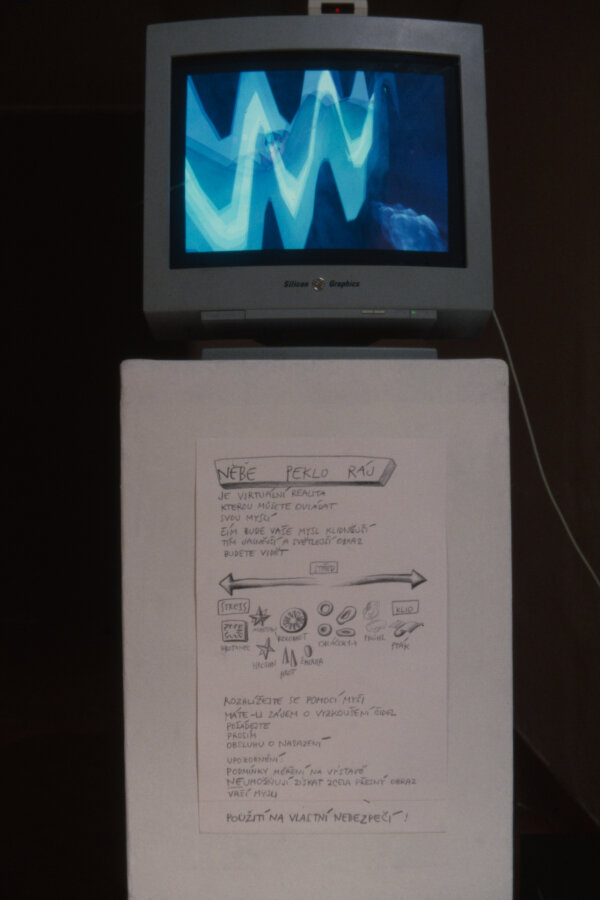 Silicon Graphics
NĚBE PEKLO RÁJ
JE VIRTUÁLNÍ REALITA
KTEROU MŮŽETE OVLÁDAT
SVOU MYSLÍ
ČÍM BUDE VAŠE MYSL KLIDNĚJŠÍ
TÍM JASNĚJŠÍ A SVĚTLEJŠÍ OBRAZ
BUDETE VIDĚT
STŘED
STRESS
KLID
PTÁK
HROT
ROZHLÍŽEJTE SE POMOCÍ MYŠI
MÁTE-LI ZÁJEM O VYZKOUŠENÍ ČIDEL
POŽÁDEJTE
PROSÍM
OBSLUHU O NASAZENÍ
UPOZORNĚNÍ
PODMÍNKY MĚŘENÍ NA VÝSTAVĚ
NEUMOŽŇUJÍ ZÍSKAT ZCELA PŘESNÝ OBRAZ
VAŠÍ MYSLI
POUŽITÍ NA VLASTNÍ NEBEZPEČÍ!